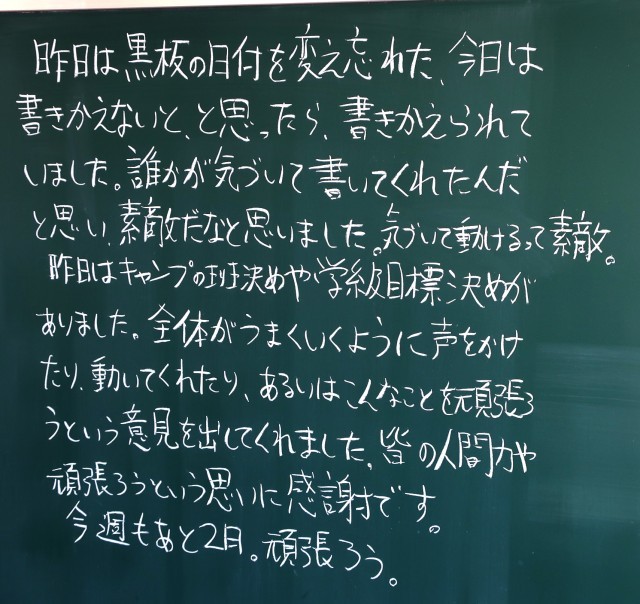 昨日は黒板の日付を変え忘れた、今日は
書きかえないと、と思ったら、書きかえられて
いました。誰かが気づいて書いてくれたんだ
と思い、素敵だなと思いました。気づいて動けるって素敵。
昨日はキャンプの班決めや学級目標決めが
ありました。全体がうまくいくように声をかけ
たり、動いてくれたり、あるいはこんなことを頑張ろ
うという意見を出してくれました。皆の人間力や
頑張ろうという思いに感謝です。
今週もあと2日。頑張ろう。